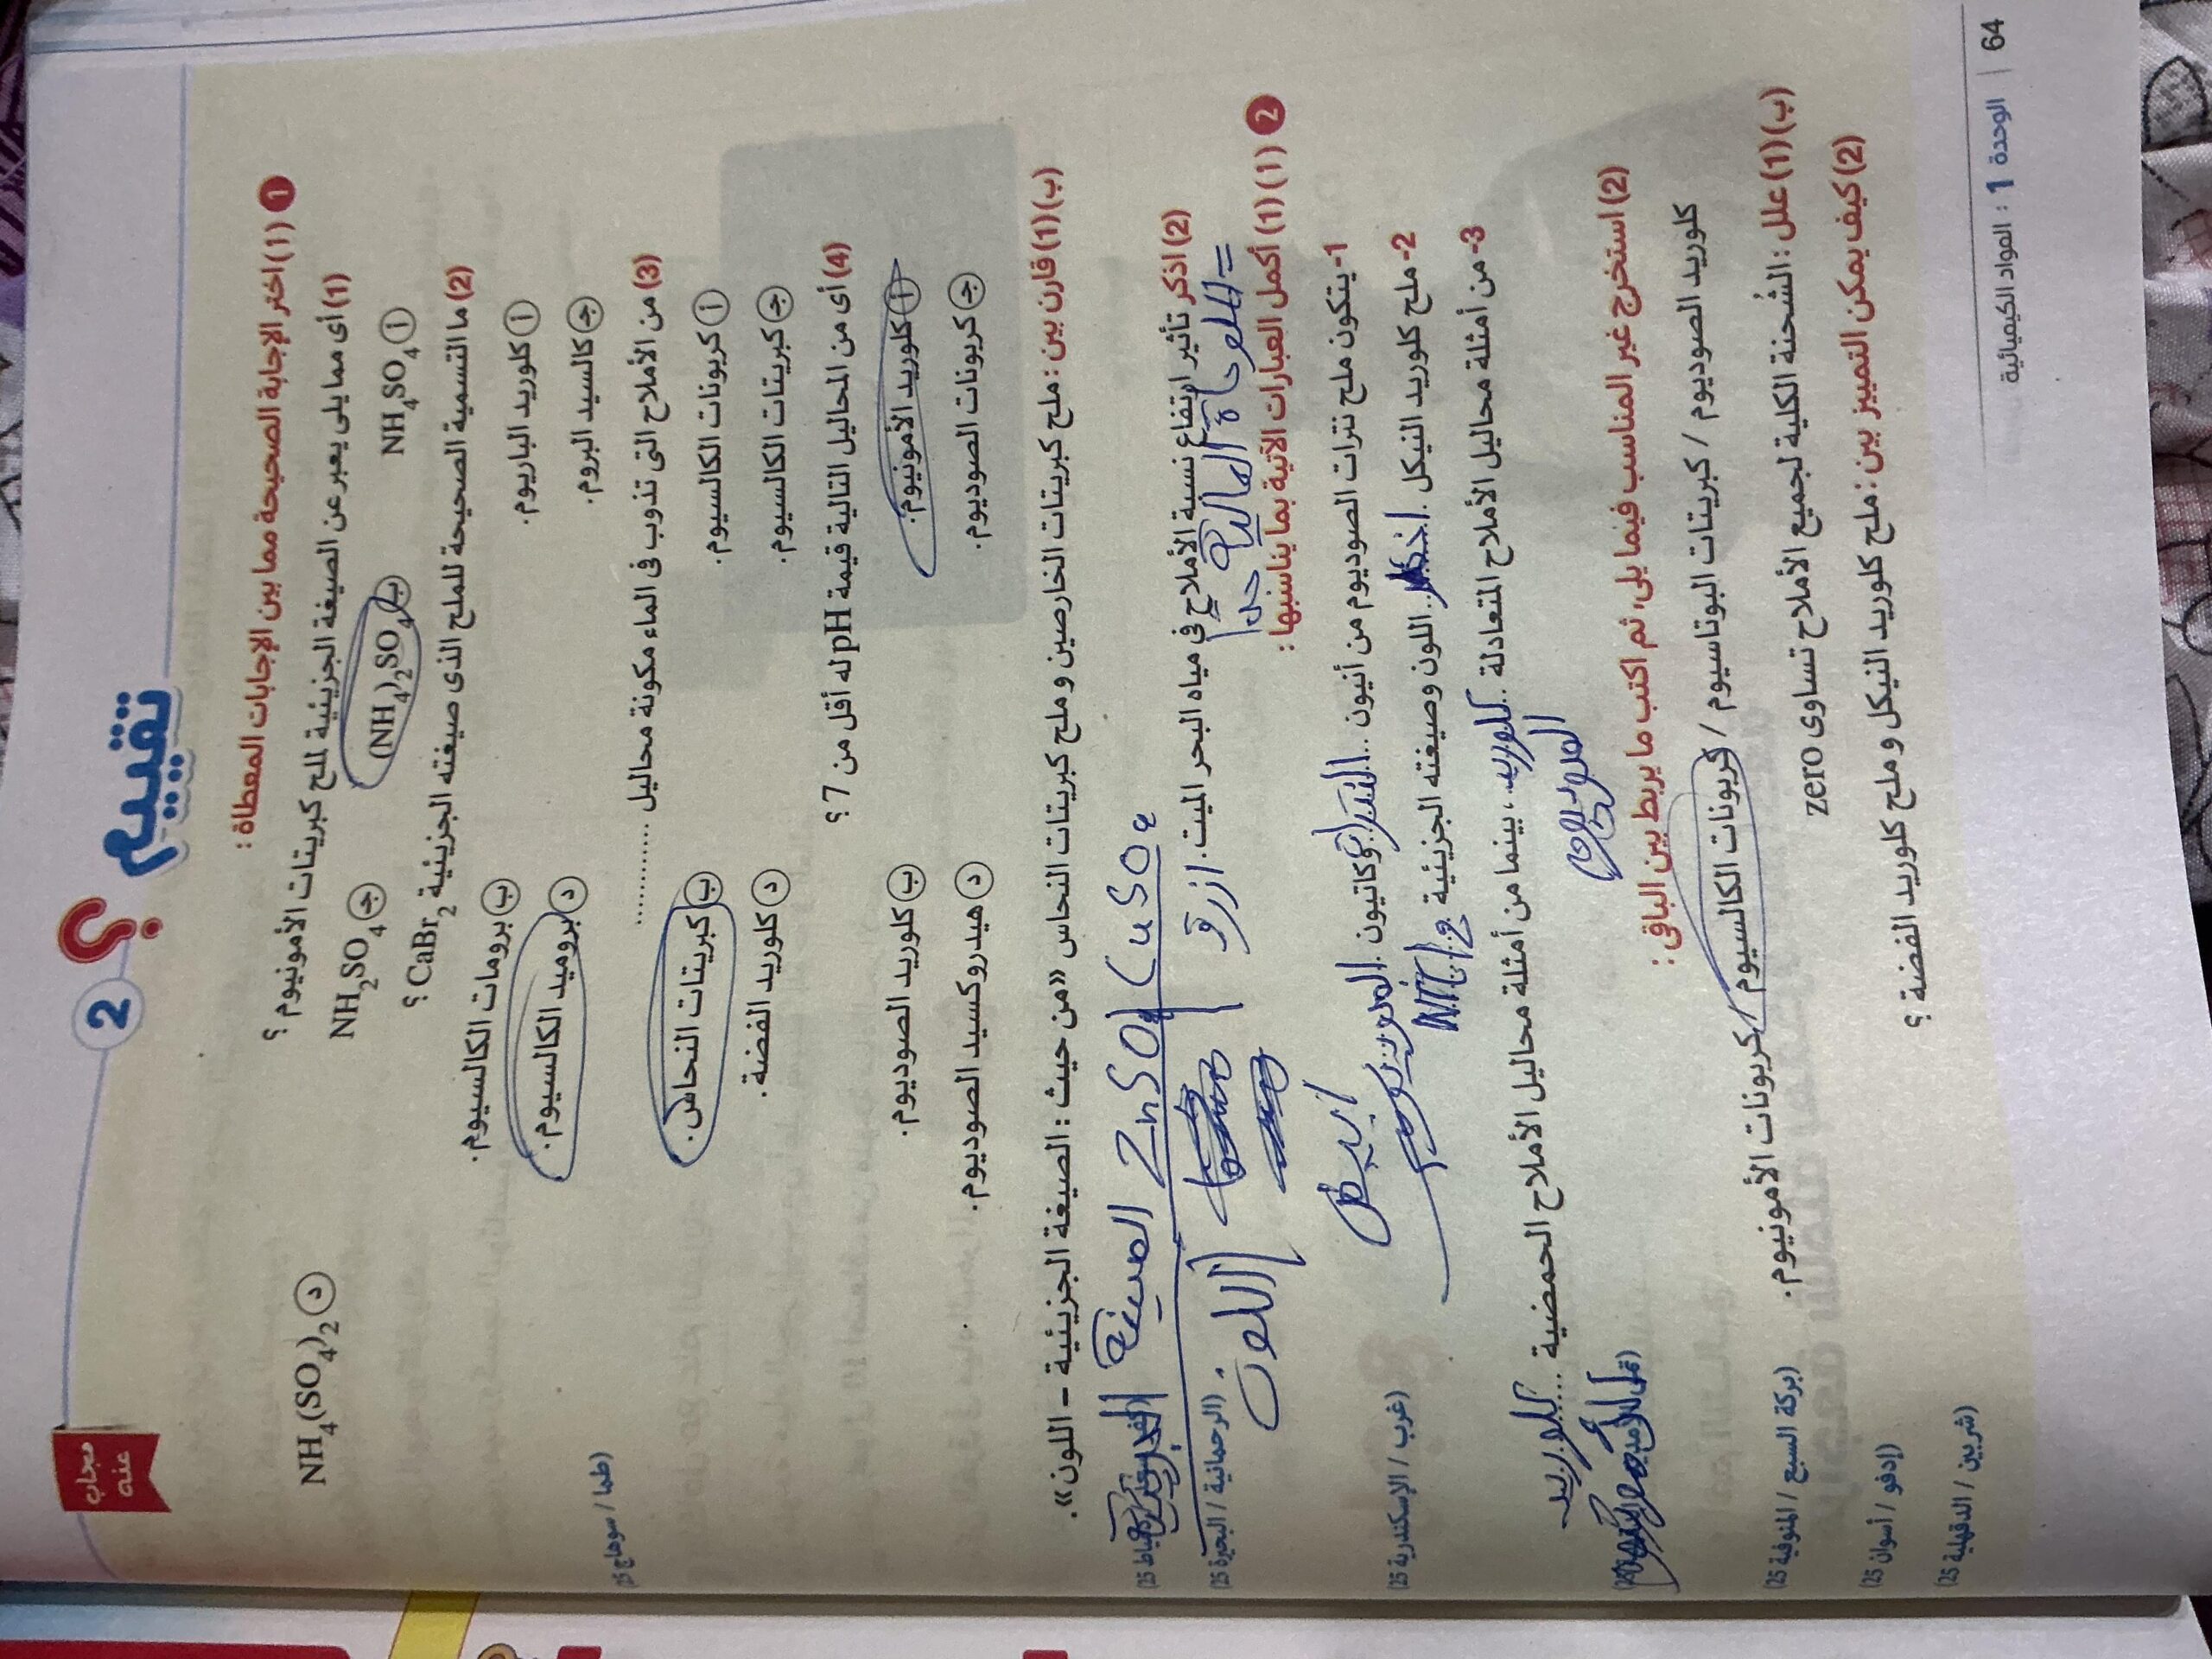 مجاب عنه
2 ؟ تقييم
1 (أ) اختر الإجابة الصحيحة مما بين الإجابات المعطاة :
(1) أى مما يلى يعبر عن الصيغة الجزيئية لملح كبريتات الأمونيوم ؟
أ NH₄SO₄ ب (NH₄)₂SO₄ ج NH₂SO₄ د NH₄(SO₄)₂
(2) ما التسمية الصحيحة للملح الذى صيغته الجزيئية CaBr₂ ؟
أ كلوريد الباريوم. ب برومات الكالسيوم.
ج كالسيد البروم. د بروميد الكالسيوم.
(3) من الأملاح التى تذوب فى الماء مكونة محاليل ............ (طما / سوهاج 25)
أ كربونات الكالسيوم. ب كبريتات النحاس.
ج كبريتات الكالسيوم. د كلوريد الفضة.
(4) أى من المحاليل التالية قيمة pH له أقل من 7 ؟
أ كلوريد الأمونيوم. ب كلوريد الصوديوم.
ج كربونات الصوديوم. د هيدروكسيد الصوديوم.
(ب) (1) قارن بين : ملح كبريتات الخارصين و ملح كبريتات النحاس «من حيث : الصيغة الجزيئية – اللون».
الصيغة ZnSO₄ CuSO₄
(2) اذكر تأثير ارتفاع نسبة الأملاح فى مياه البحر الميت. (الرحمانية / البحيرة 25)
اللون ابيض ازرق
الملوحة العالية جدا
2 (أ) (1) أكمل العبارات الآتية بما يناسبها :
1- يتكون ملح نترات الصوديوم من أنيون النترات وكاتيون الصوديوم (غرب / الإسكندرية 25)
2- ملح كلوريد النيكل اخضر اللون وصيغته الجزيئية
3- من أمثلة محاليل الأملاح المتعادلة كلوريد الصوديوم ، بينما من أمثلة محاليل الأملاح الحمضية كلوريد
(2) استخرج غير المناسب فيما يلى، ثم اكتب ما يربط بين الباقى :
كلوريد الصوديوم / كبريتات البوتاسيوم / كربونات الكالسيوم / كربونات الأمونيوم. (بركة السبع / المنوفية 25)
(ب) (1) علل : الشحنة الكلية لجميع الأملاح تساوى zero (إدفو / أسوان 25)
(2) كيف يمكن التمييز بين : ملح كلوريد النيكل و ملح كلوريد الفضة ؟ (شربين / الدقهلية 25)
64 | الوحدة 1 : المواد الكيميائية